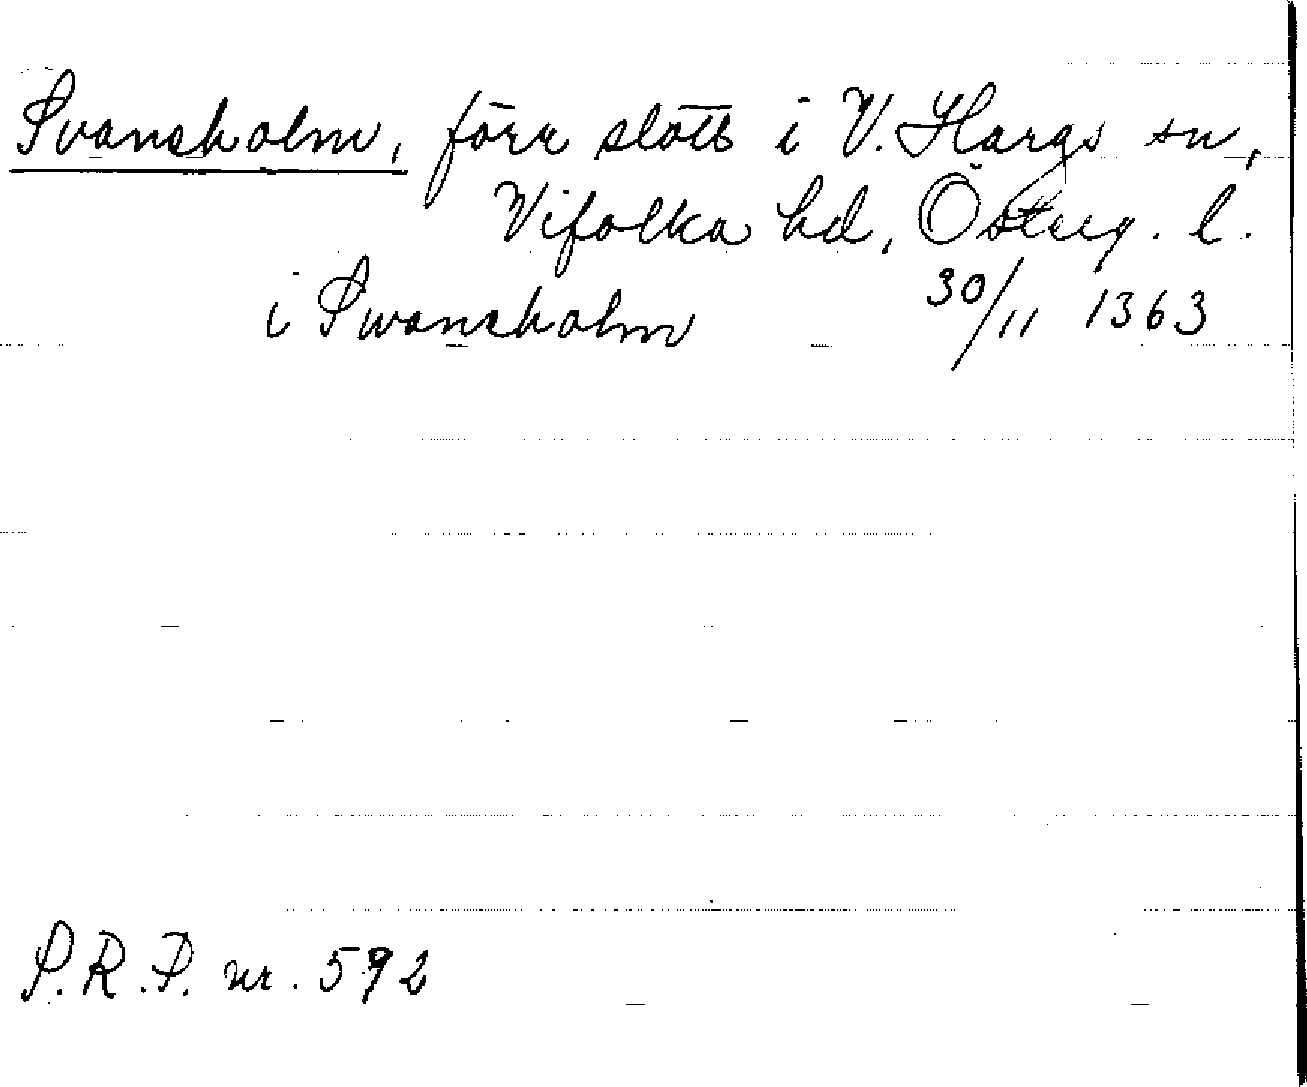 Svansholm, förr slott i V. Hargs sn,
Vifolka hd, Österg. l.
i Swansholm 30/11 1363
S.R.P. nr. 592